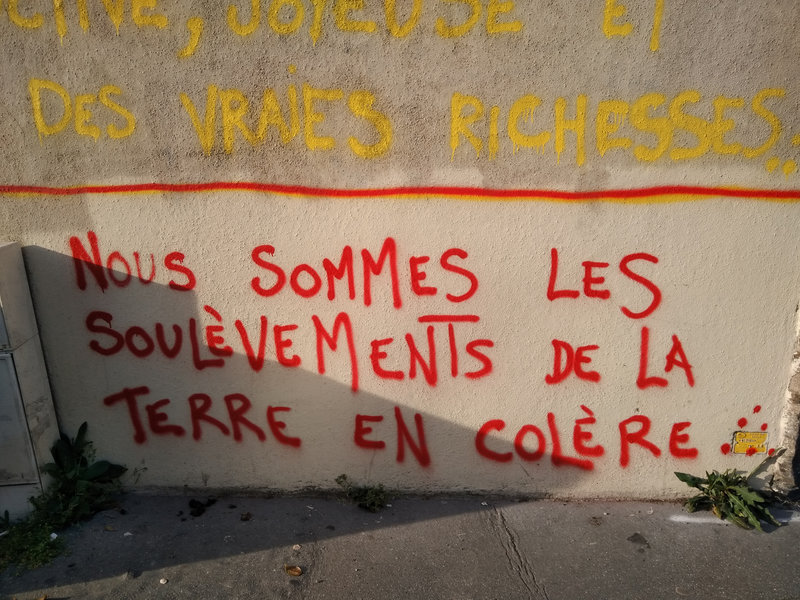 JOYEUSE ET
DES VRAIES RICHESSES...
NOUS SOMMES LES
SOULÈVEMENTS DE LA
TERRE EN COLÈRE